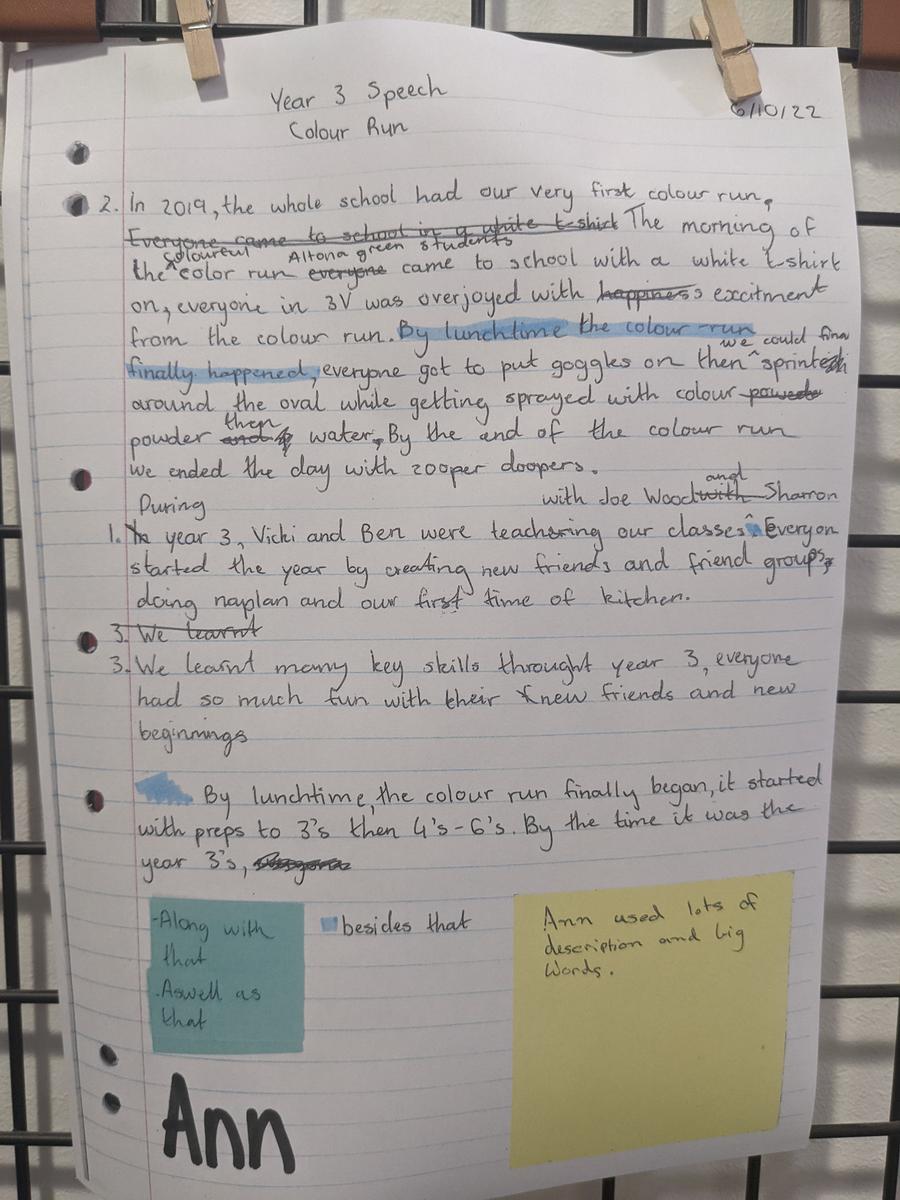 Year 3 Speech
Colour Run
6/10/22
2. In 2019, the whole school had our very first colour run,
Everyone came to school in a white t-shirt The morning of
coloureul Altona green students
the color run everyone came to school with a white t-shirt
on, everyone in 3V was overjoyed with happiness excitment
from the colour run. By lunchtime the colour run
we could fina
finally happened, everyone got to put goggles on then sprinted
around the oval while getting sprayed with colour powede
then
powder and water, By the end of the colour run
we ended the day with zooper doopers.
During
with Joe Wood with Sharron
and
1. In year 3, Vicki and Ben were teachering our classes. Everyon
started the year by creating new friends and friend groups,
doing naplan and our first time of kitchen.
3. We learnt
3. We learnt many key skills throught year 3, everyone
had so much fun with their new friends and new
beginnings
By lunchtime, the colour run finally began, it started
with preps to 3's then 4's-6's. By the time it was the
year 3's,
-Along with
that
.Aswell as
that
besides that
Ann used lots of
description and big
words.
Ann